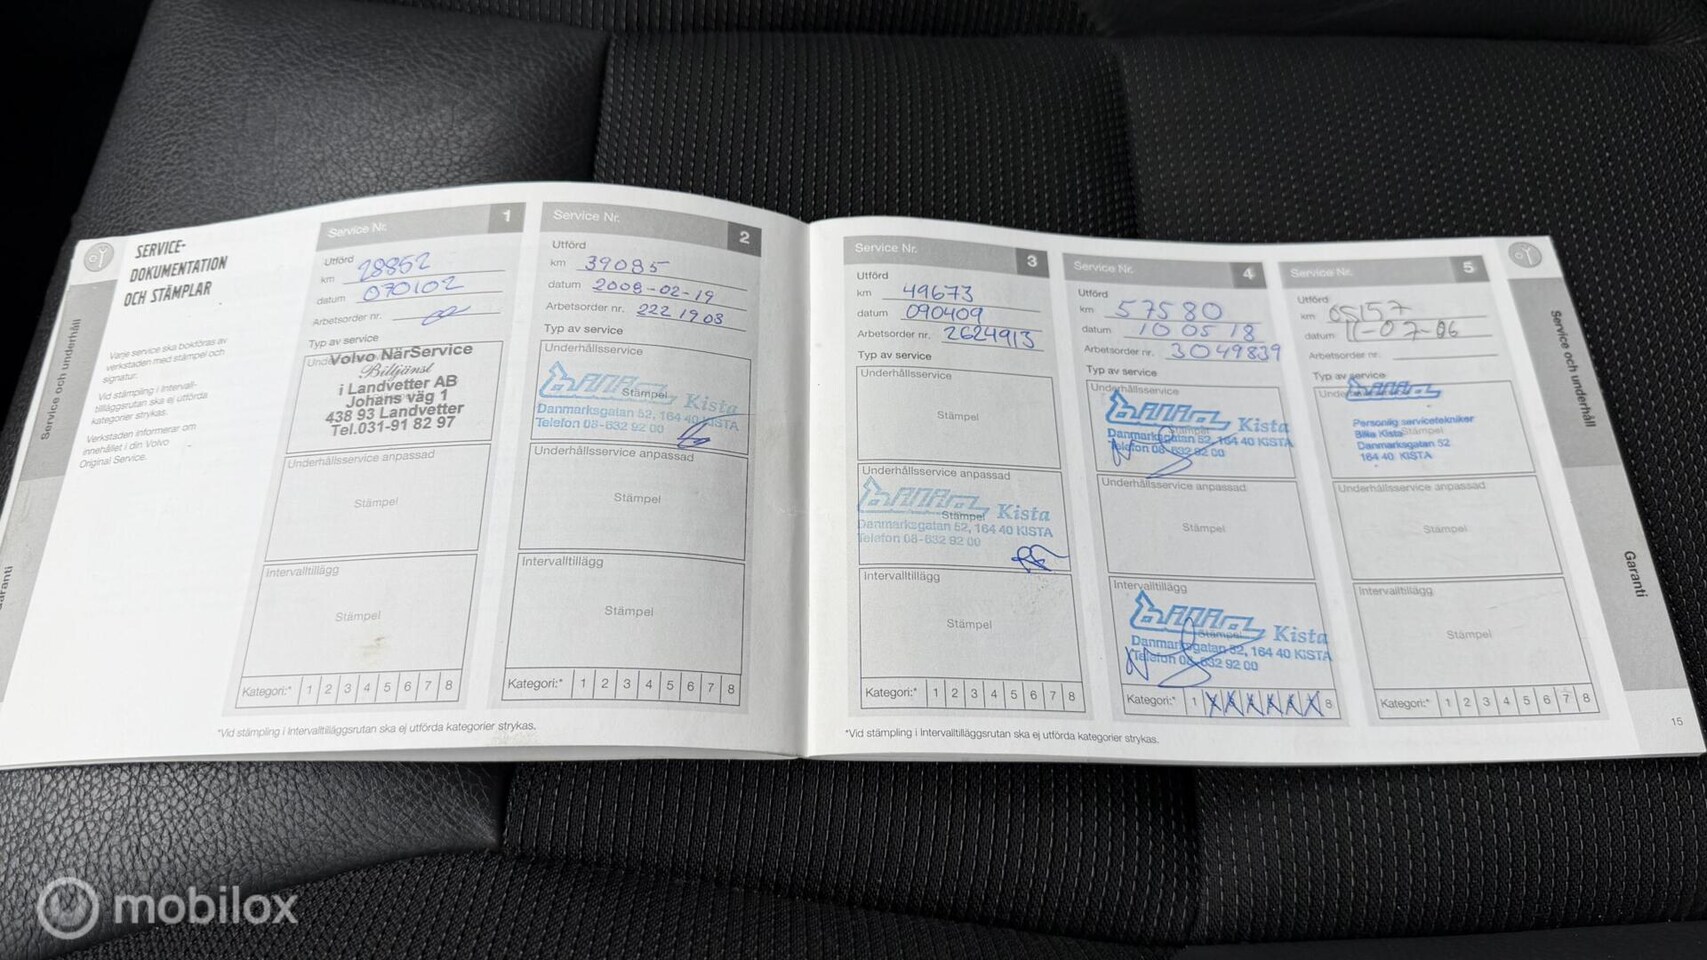 SERVICE-
DOKUMENTATION
OCH STÄMPLAR
Varje service ska bokföras av
verkstaden med stämpel och
signatur.
Vid stämpling i Intervall-
tilläggsrutan ska ej utförda
kategorier strykas.
Verkstaden informerar om
innehållet i din Volvo
Original Service.
Service och underhåll
Service Nr. 1
Utförd
km 28852
datum 070102
Arbetsorder nr.
Typ av service
Volvo NärService
Biltjänst
i Landvetter AB
Johans väg 1
438 93 Landvetter
Tel.031-91 82 97
Underhållsservice anpassad
Stämpel
Intervalltillägg
Stämpel
Kategori:* 1 2 3 4 5 6 7 8
Service Nr. 2
Utförd
km 39085
datum 2008-02-19
Arbetsorder nr. 2221903
Typ av service
Underhållsservice
Stämpel
Bilia Kista
Danmarksgatan 52, 164 40 KISTA
Telefon 08-632 92 00
Underhållsservice anpassad
Stämpel
Intervalltillägg
Stämpel
Kategori:* 1 2 3 4 5 6 7 8
*Vid stämpling i Intervalltilläggsrutan ska ej utförda kategorier strykas.
Service Nr. 3
Utförd
km 49673
datum 090409
Arbetsorder nr. 2624913
Typ av service
Underhållsservice
Stämpel
Underhållsservice anpassad
Bilia Kista
Stämpel
Danmarksgatan 52, 164 40 KISTA
Telefon 08-632 92 00
Intervalltillägg
Stämpel
Kategori:* 1 2 3 4 5 6 7 8
Service Nr. 4
Utförd
km 57580
datum 100518
Arbetsorder nr. 3049839
Typ av service
Underhållsservice
Bilia Kista
Stämpel
Danmarksgatan 52, 164 40 KISTA
Telefon 08-632 92 00
Underhållsservice anpassad
Stämpel
Intervalltillägg
Bilia Kista
Stämpel
Danmarksgatan 52, 164 40 KISTA
Telefon 08-632 92 00
Kategori:* 1 8
Service Nr. 5
Utförd
km
datum 11-07-06
Arbetsorder nr.
Typ av service
Bilia
Personlig servicetekniker
Bilia Kista
Stämpel
Danmarksgatan 52
164 40 KISTA
Underhållsservice anpassad
Stämpel
Intervalltillägg
Stämpel
Kategori:* 1 2 3 4 5 6 7 8
*Vid stämpling i Intervalltilläggsrutan ska ej utförda kategorier strykas.
Service och underhåll
Garanti
15
mobilox